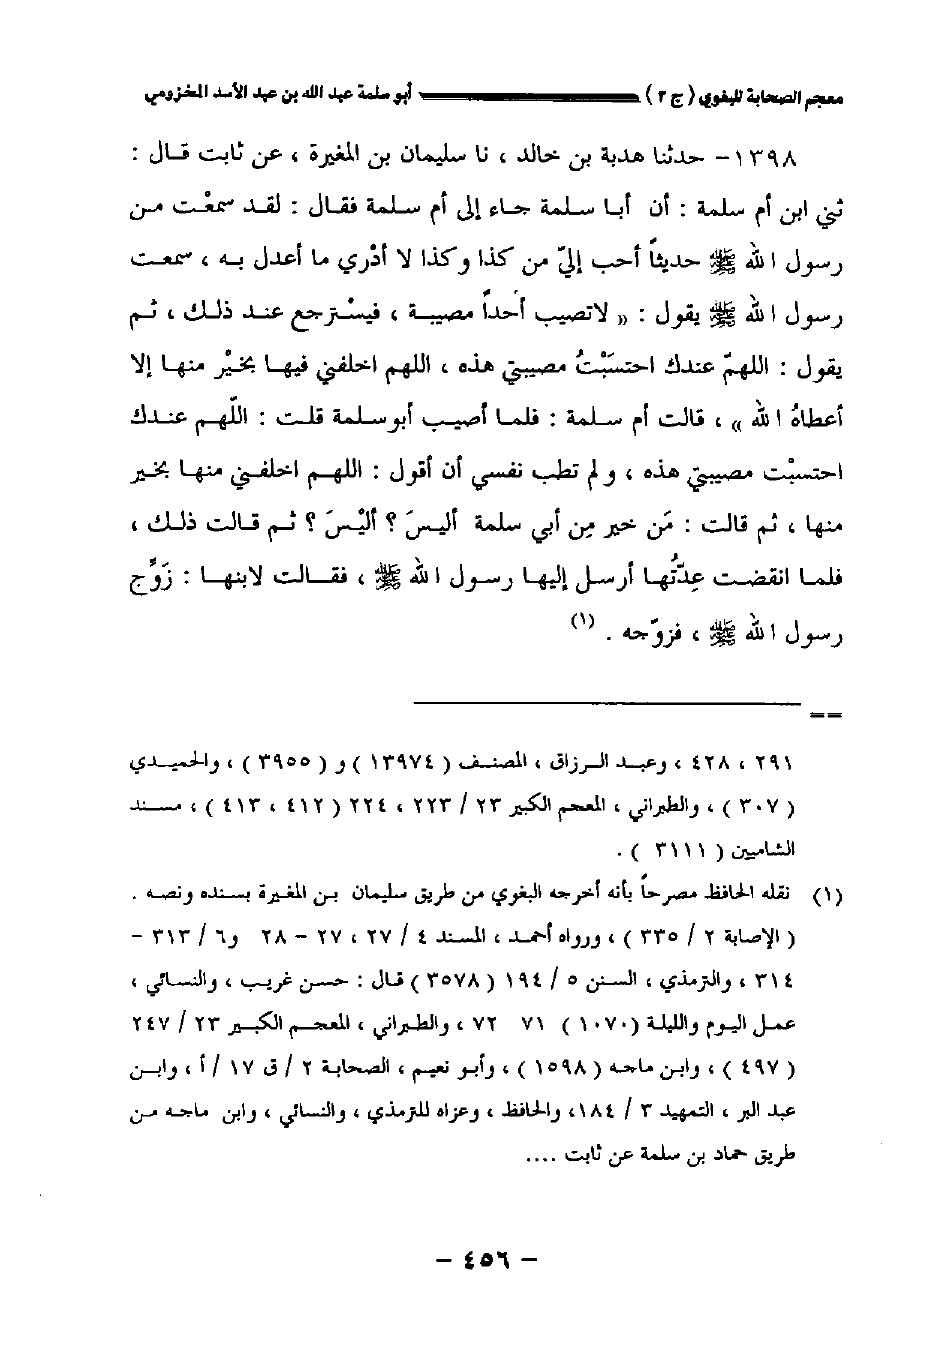 معجم الصحابة للبغوي ( ج ٣ ) أبو سلمة عبد الله بن عبد الأسد المخزومي
١٣٩٨ - حدثنا هدبة بن خالد ، نا سليمان بن المغيرة ، عن ثابت قال :
ثني ابن أم سلمة : أن أبا سلمة جاء إلى أم سلمة فقال : لقد سمعْت من
رسول الله ﷺ حديثاً أحب إليّ من كذا وكذا لا أدْري ما أعدل به ، سمعت
رسول الله ﷺ يقول : « لاتصيب أحداً مصيبة ، فيسْترجع عند ذلك ، ثم
يقول : اللهمّ عندك احتسَبْتُ مصيبتي هذه ، اللهم اخلفني فيها بخيْر منها إلا
أعطاهُ الله » ، قالت أم سلمة : فلما أصيب أبوسلمة قلت : اللّهم عندك
احتسبْت مصيبتي هذه ، ولم تطب نفسي أن أقول : اللهم اخلفني منها بخير
منها ، ثم قالت : مَن خير مِن أبي سلمة أليسَ ؟ أليْسَ ؟ ثم قالت ذلك ،
فلما انقضت عِدّتُها أرسل إليها رسول الله ﷺ ، فقالت لابنها : زَوِّج
رسول الله ﷺ ، فزوّجه . (١)
==
٢٩١ ، ٤٢٨ ، وعبد الرزاق ، المصنف ( ١٣٩٧٤ ) و ( ٣٩٥٥ ) ، والحميدي
( ٣٠٧ ) ، والطبراني ، المعجم الكبير ٢٣ / ٢٢٣ ، ٢٢٤ ( ٤١٢ ، ٤١٣ ) ، مسند
الشاميين ( ٣١١١ ) .
(١) نقله الحافظ مصرحاً بأنه أخرجه البغوي من طريق سليمان بن المغيرة بسنده ونصه .
( الإصابة ٢ / ٣٣٥ ) ، ورواه أحمد ، المسند ٤ / ٢٧ ، ٢٧ - ٢٨ و٦ / ٣١٣ -
٣١٤ ، والترمذي ، السنن ٥ / ١٩٤ ( ٣٥٧٨ ) قال : حسن غريب ، والنسائي ،
عمل اليوم والليلة (١٠٧٠ ) ٧١ ٧٢ ، والطبراني ، المعجم الكبير ٢٣ / ٢٤٧
( ٤٩٧ ) ، وابن ماجه ( ١٥٩٨ ) ، وأبو نعيم ، الصحابة ٢ / ق ١٧ / أ ، وابن
عبد البر ، التمهيد ٣ / ١٨٤، والحافظ ، وعزاه للترمذي ، والنسائي ، وابن ماجه من
طريق حماد بن سلمة عن ثابت ....
- ٤٥٦ -